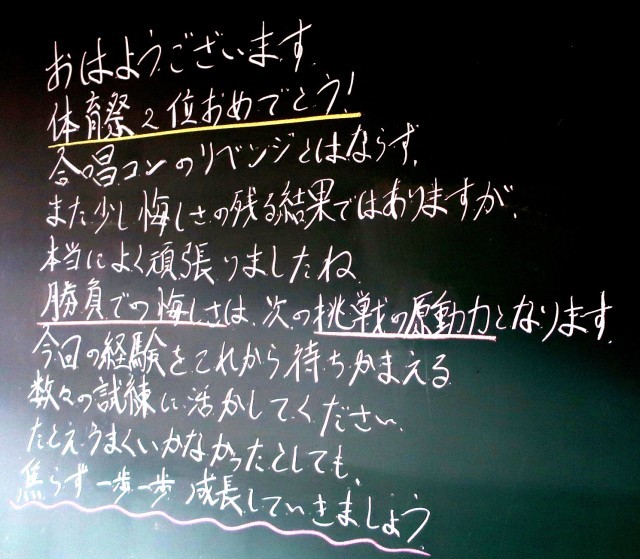 おはようございます
体育祭2位おめでとう!
合唱コンのリベンジとはならず、
また少し悔しさの残る結果ではありますが、
本当によく頑張りましたね
勝負での悔しさは、次の挑戦の原動力となります
今回の経験をこれから待ちかまえる
数々の試練に活かしてください
たとえうまくいかなかったとしても、
焦らず一歩一歩成長していきましょう